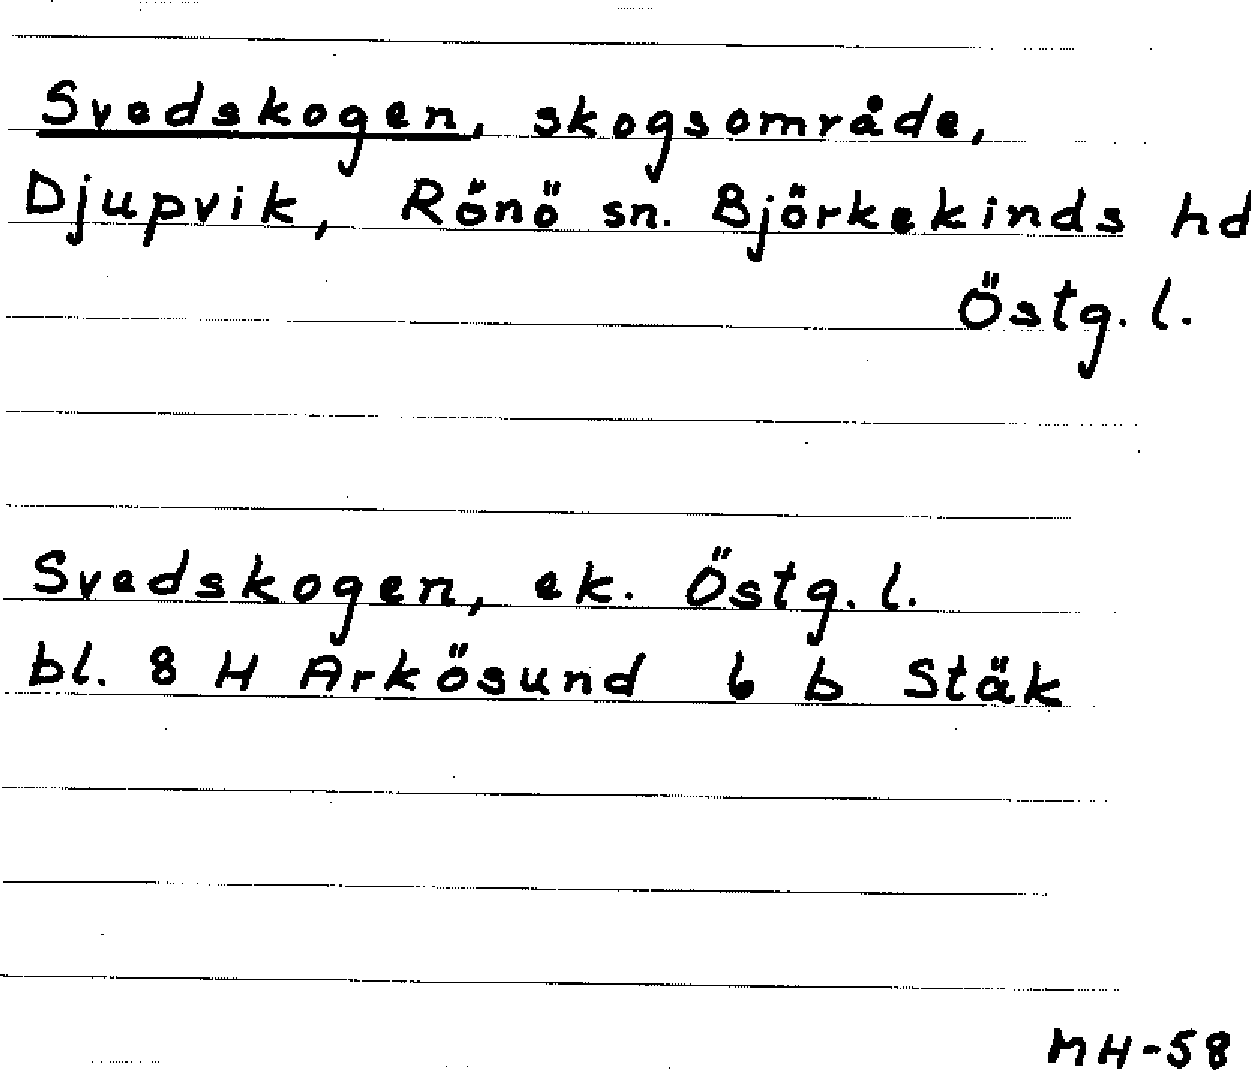 Svedskogen, skogsområde,
Djupvik, Rönö sn. Björkekinds hd
Östg. l.
Svedskogen, ek. Östg. l.
bl. 8 H Arkösund 6 b Stäk
MH-58